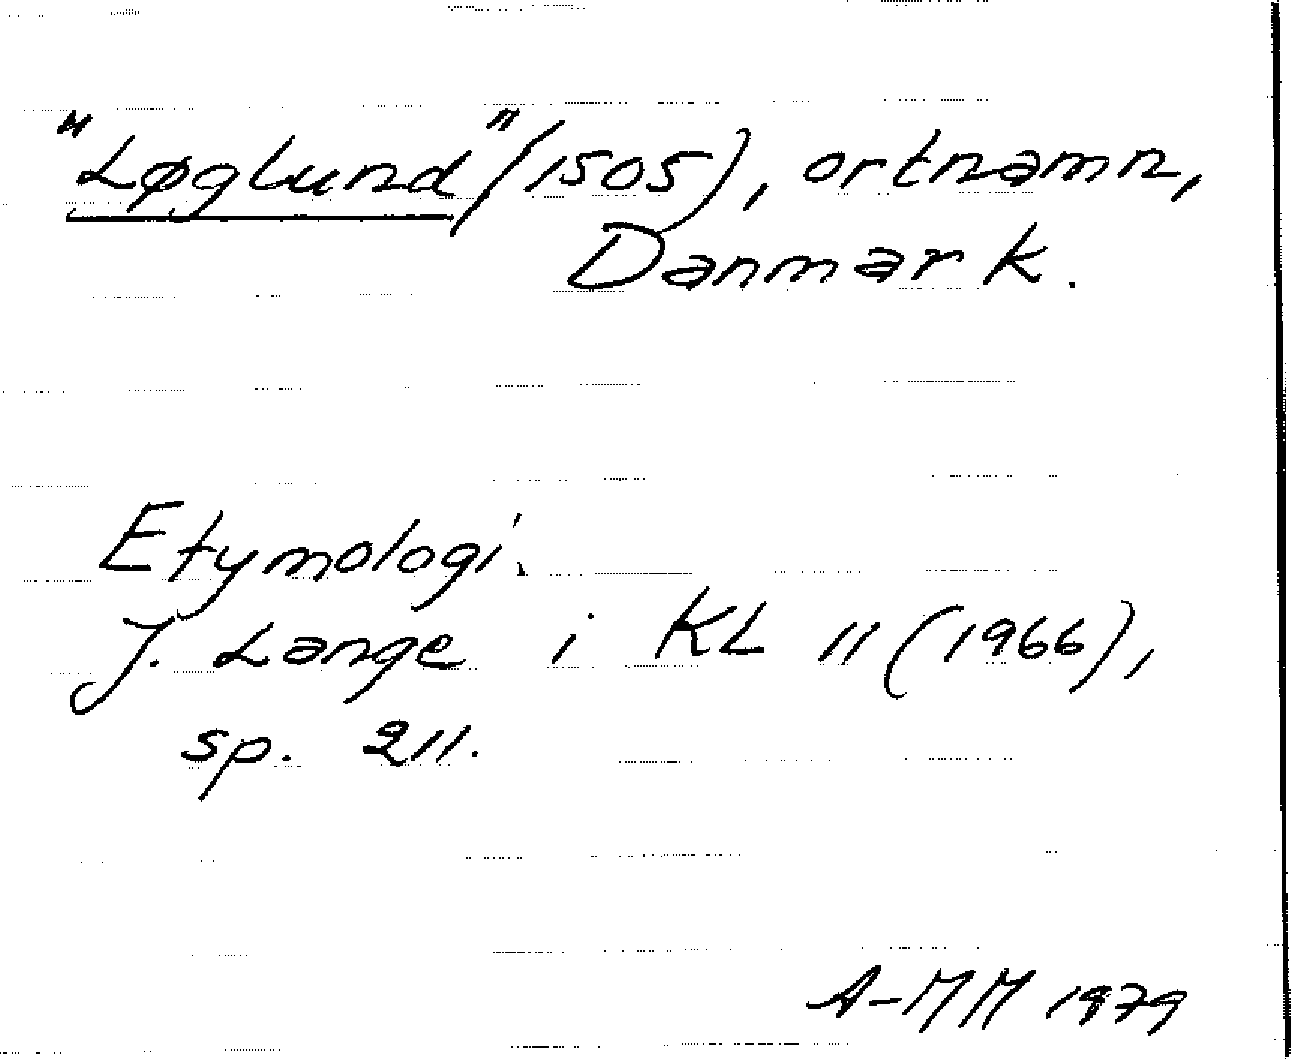 "Løglund" (1505), ortnamn,
Danmark.
Etymologi.
J. Lange i KL 11 (1966),
sp. 211.
A-MM 1979